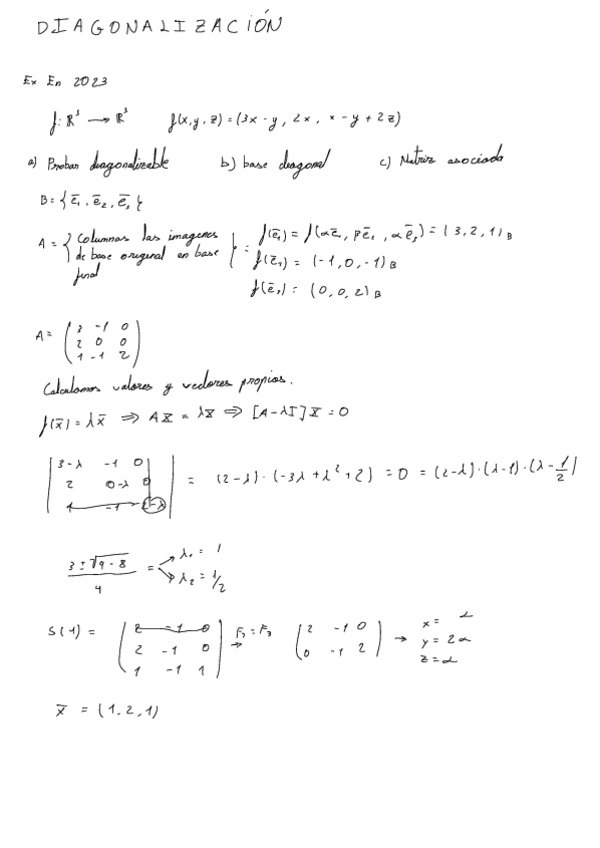 DIAGONALIZACIÓN
Ex En 2023
f: R³ → R³ f(x,y,z) = (3x - y, 2x, x - y + 2z)
a) Probar diagonalizable b) base diagonal c) Matriz asociada
B = { e̅₁, e̅₂, e̅₃ }
A = { Columnas las imagenes de base original en base final } = f(e̅₁) = f(αe̅₁, βe̅₁, αe̅₃) = (3, 2, 1)_B
f(e̅₂) = (-1, 0, -1)_B
f(e̅₃) = (0, 0, 2)_B
A = ( 3 -1 0
2 0 0
1 -1 2 )
Calculamos valores y vectores propios.
f(x̅) = λx̅ ⇒ AX = λX ⇒ [A - λI] X = 0
| 3-λ -1 0 |
| 2 0-λ 0 | = (2-λ)·(-3λ+λ²+2) = 0 = (2-λ)·(λ-1)·(λ-1/2)
| 1 -1 2-λ |
(3 ± √(9-8)) / 4 = λ₁ = 1
λ₂ = 1/2
S(1) = ( 2 -1 0 F₁ = F₂ ( 2 -1 0 → x = α
2 -1 0 → 0 -1 2 ) y = 2α
1 -1 1 ) z = α
x̅ = (1, 2, 1)